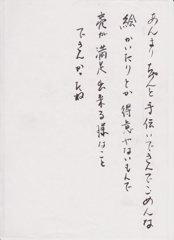 あんまりちゃんと手伝いできんでごめんな
絵かいたりとか得意やないもんで
亮が満足出来る様なこと
できんかったね